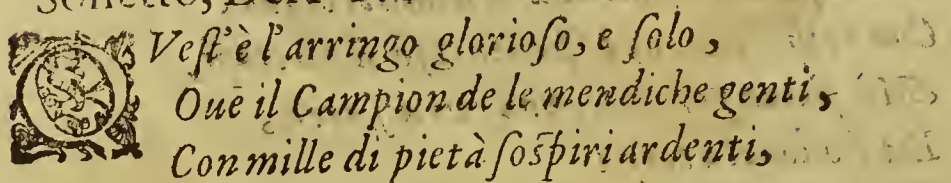 QVeſt'è l'arringo glorioſo, e ſolo,
Oue il Campion de le mendiche genti,
Con mille di pietà ſoſpiri ardenti,